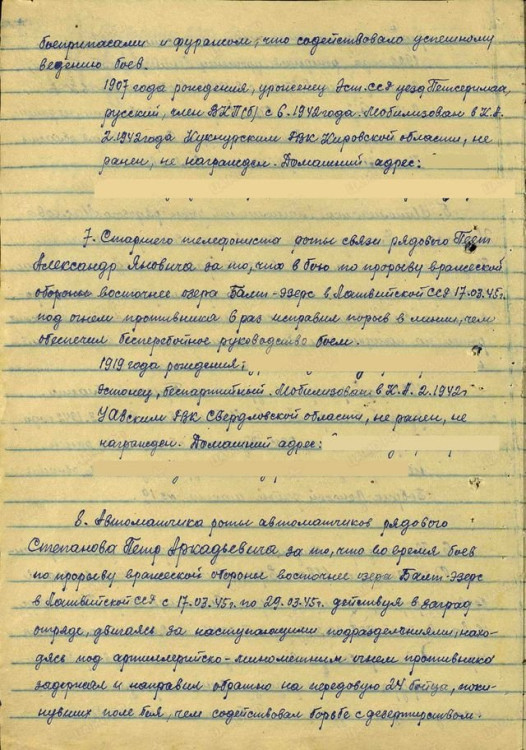 боеприпасами и фуражом, что содействовало успешному
ведению боев.
1907 года рождения, уроженец Эст.ССР уезд Петсеримаа,
русский, член ВКП(б) с 6.1942 года. Мобилизован в К.А.
2.1942 года Кукнурским РВК Кировской области, не
ранен, не награжден. Домашний адрес:
7. Старшего телефониста роты связи рядового Пает
Александр Яновича за то, что в бою по прорыву вражеской
обороны восточнее озера Балт-эзерс в Латвийской ССР 17.03.45г.
под огнем противника 6 раз исправил порыв в линии, чем
обеспечил бесперебойное руководство боем.
1919 года рождения,
эстонец, беспартийный. Мобилизован в К.А. 2.1942г
РВК Свердловской области, не ранен, не
награжден. Домашний адрес:
8. Автоматчика роты автоматчиков рядового
Степанова Петр Аркадьевича за то, что во время боев
по прорыву вражеской обороны восточнее озера Балт-эзерс
в Латвийской ССР с 17.03.45г. по 29.03.45г. действуя в заград
отряде, двигаясь за наступающими подразделениями, нахо-
дясь под артиллерийско-минометным огнем противника
задержал и направил обратно на передовую 24 бойца, поки-
нувших поле боя, чем содействовал борьбе с дезертирством.